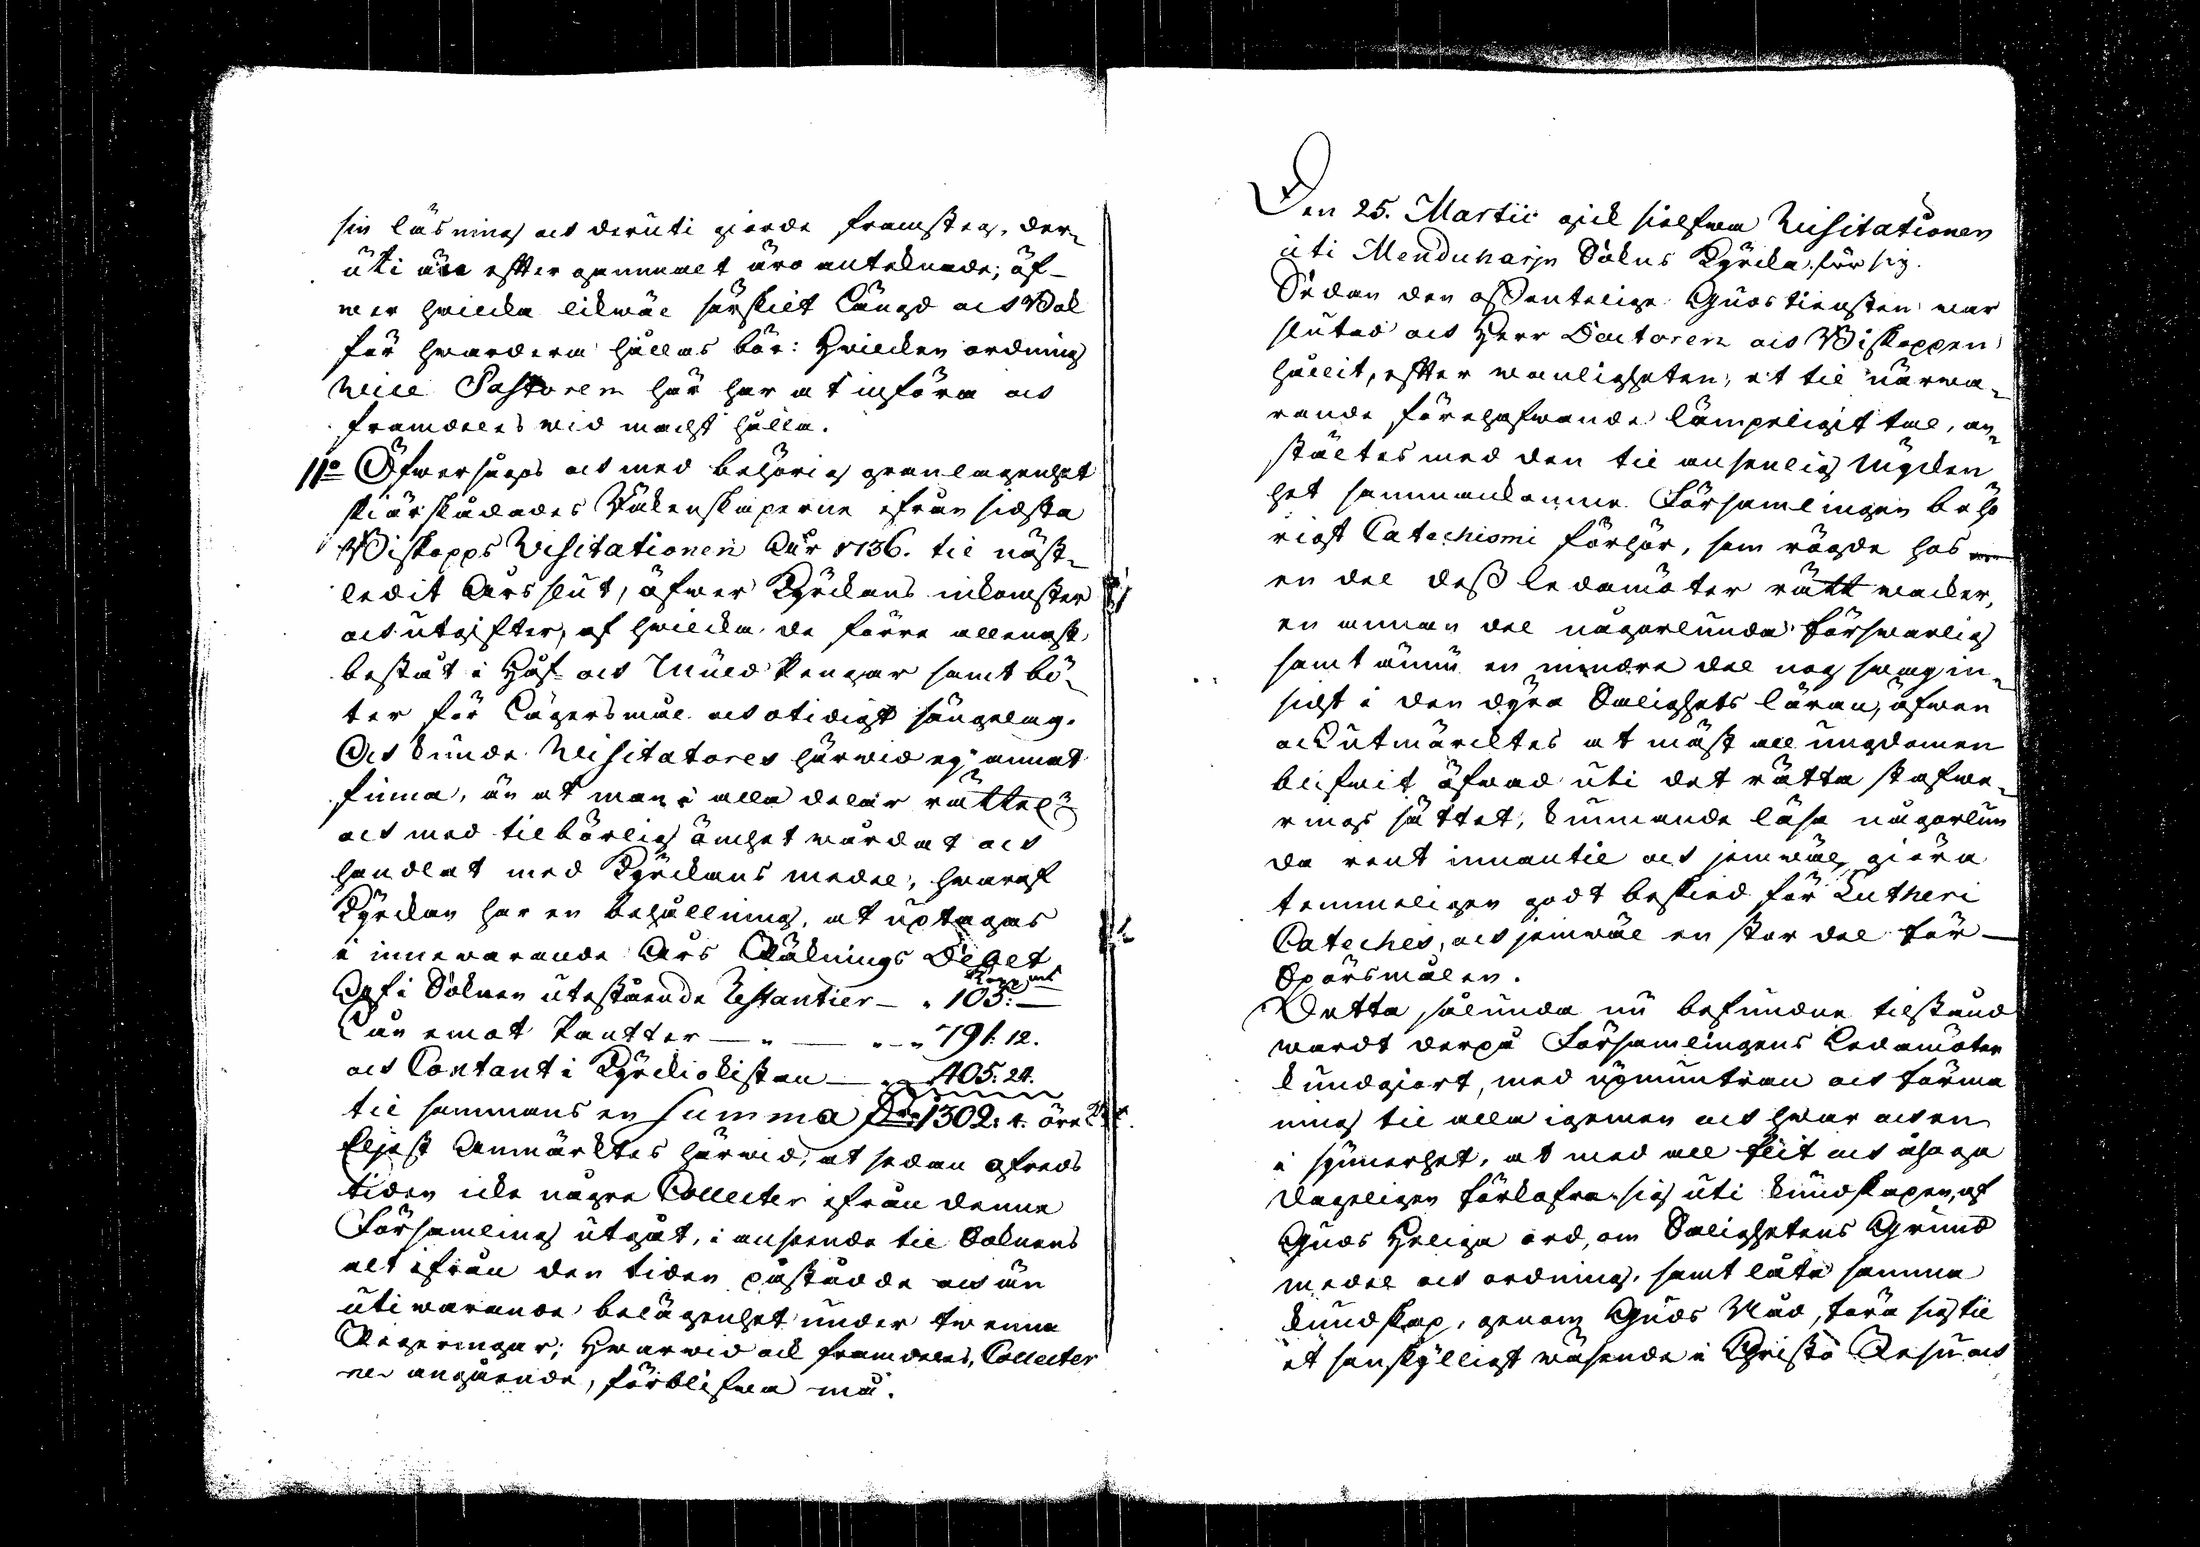 sin läsning och deruti giorde framsteg, der-
uti äre effter gammalt äro anteknade; öf-
wer hvilcka likwäl särskilt Längd och Bok
för hvardera hållas bör: Hvilcken ordning
Vice Pastoren här har at införa och
framdeles vid macht hålla.
11o Öfwersågs och med behörig granlagenhet
skiärskådades Räkenskaperne ifrån sidsta
Biskops Visitationen Åhr 1736. til näst-
ledit Års slut, öfwer Kyrckans inkomster
och utgifter, af hvilcka de förre allenast
bestått i Håf- och Mull Pengar samt bö-
ter för Lägersmål och otidigt sängelag.
Och kunde Visitatores härwid ey annat
finna, än at man i alla delar rättel:n
och med tilbörlig ömhet wårdat och
handlat med Kyrckans medel, hwaraf
Kyrckan har en behållning, at uptagas
i innewarande Års Räknings Debet
Kopp:mt
Af i Soknen utestående Restantier — " 105: —
Lån emot Pantter — " — " - " 791: 12.
och Contant i Kyrckiokistan — " 405: 24.
til sammans en Summa Dr 1302: 4. öre K:mt.
Eljest Anmärcktes härwid, at sedan ofreds
tiden icke några Collecter ifrån denna
Församling utgåt, i anseende til Soknens
alt ifrån den tiden påstådde och än
uti warande belägenhet under twenne
Regeringar; Hwarwid ock framdeles, Collecter
ne angående, förblifwa må.
Den 25. Martii gick sielfwa Visitationen
uti Menduharju Sokns Kyrcka för sig.
Sedan den offentelige Gudstiensten war
slutad och Herr Doctoren och Biskoppen
hållit, effter wanligheten, et til närwa-
rande förehafwande lämpeligit tal, an-
stältes med den til ansenlig myckken
het sammankomne Församlingen behö
rigt Catechismi förhör, som rögde hos
en del dess ledamöter rätt wacker,
en annan del någorlunda försvarlig
samt ännu en mindre del nog swag in-
sickt i den dyra Salighets läran, äfwen
och utmärcktes at mäst all ungdomen
blifwit öfwad uti det rätta stafwe-
rings sättet, kunnande läsa någorlun
da rent innantil och jemwäl giöra
temmeligen godt beskied för Lutheri
Cateches, och jemwäl en stor del för
Spörsmålen.
Detta sålunda nu befundne tilstånd
wardt derpå Församlingens Ledamöter
kundgiort, med upmuntran och förma
ning til alla igemen och hwar och en
i synnerhet, at med all flit och åhoga
dageligen förkofra sig uti kundskapen, af
Guds Heliga ord, om Salighetens Grund
medel och ordning, samt låta samma
kundskap, genom Guds Nåd, föra sig til
et sanskylligt wäsende i Christo Jesu och